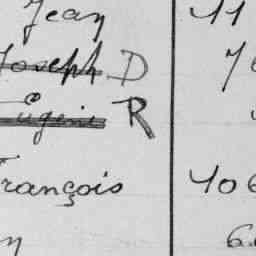 Jean 11
Joseph D
Eugène R
François 106